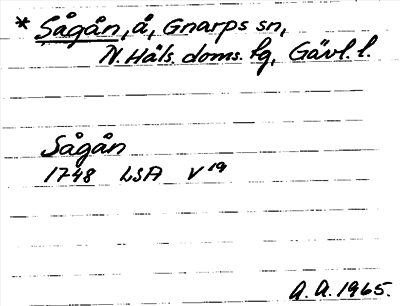 * Sågån, å, Gnarps sn,
N. Häls. doms. fg, Gävl. l.
Sågån
1748 LSA V 19
A. A. 1965.